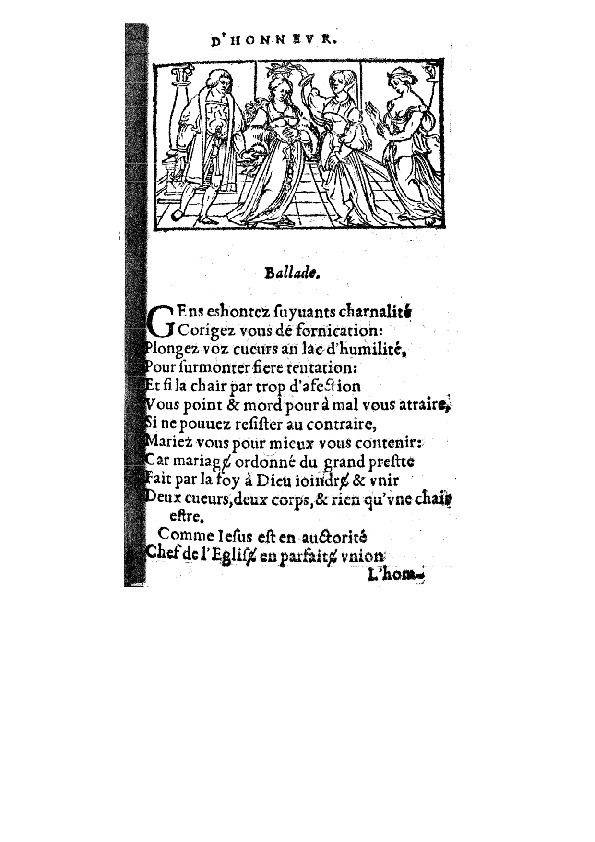 D'HONNEVR.
Ballade.
GEns eshontez ſuyuants charnalité
Corigez vous de fornication:
Plongez voz cueurs an lac d'humilité,
Pour ſurmonter fiere tentation:
Et ſi la chair par trop d'afection
Vous point & mord pour à mal vous atraire,
Si ne pouuez reſiſter au contraire,
Mariez vous pour mieux vous contenir:
Car mariagɇ ordonné du grand preſtre
Fait par la foy à Dieu ioindrɇ & vnir
Deux cueurs, deux corps, & rien qu'vne chair
eſtre.
Comme Ieſus eſt en auctorité
Chef de l'Egliſɇ en parfaitɇ vnion
L'hom-